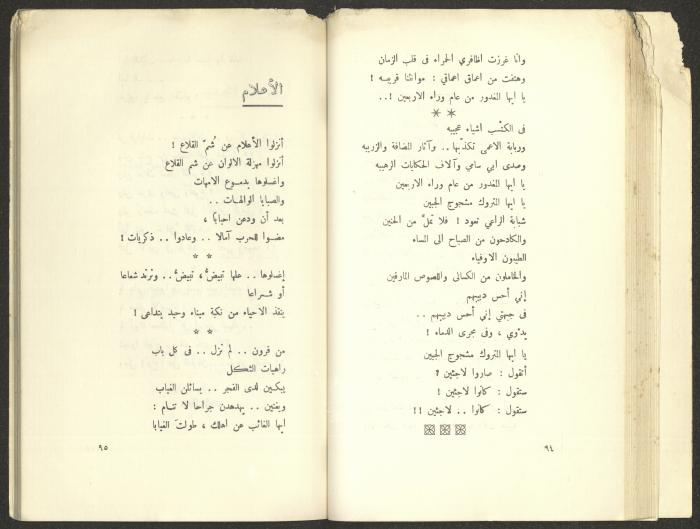 وانا غرزت اظافري الحمراء فى قلب الزمان
وهتفت من اعماق اعماقي : موانئنا قريبه !
يا ايها المغدور من عام وراء الاربعين ! ..
* *
فى الكتب اشياء عجيبه
وربابة الاعمى تكذبها .. وآثار المضافة والزريبه
وصدى ابي سامي وآلاف الحكايات الرهيبه
يا ايها المغدور من عام وراء الاربعين
يا ايها المتروك مشجوج الجبين
شبابة الراعي تعود ! فلا تملّ من الحنين
والكادحون من الصباح الى المساء
الطيبون الاوفياء
والحاملون من الكسالى واللصوص المارقين
إني أحس دبيبهم
فى جبهتي إني أحس دبيبهم ..
يدوّي ، وفى مجرى الدماء !
يا ايها المتروك مشجوج الجبين
أتقول : صاروا لاجئين ?
ستقول : كانوا لاجئين !
ستقول : كانوا .. لاجئين !!
٩٤
الأعلام
أنزلوا الأعلام عن شُمّ القلاع !
أنزلوا مهزلة الالوان عن شم القلاع
واغسلوها بدموع الامهات
والصبايا الوالهات ..
بعد أن ودعن احبابًا ،
مضوا للحرب آمالا .. وعادوا .. ذكريات !
* *
إغسلوها .. علها تبيضُّ ، تبيضُّ .. وترتد شعاعا
أو شراعا
ينقذ الاحياء من نكبة ميناء وحيد يتداعى !
* *
من قرون .. لم تزل .. فى كل باب
راهبات الثكل
يبكين لدى الفجر .. يسائلن الغياب
ويغنين .. يهدهدن جراحا لا تنام :
ايها الغائب عن اهلك ، طولت الغيابا
٩٥